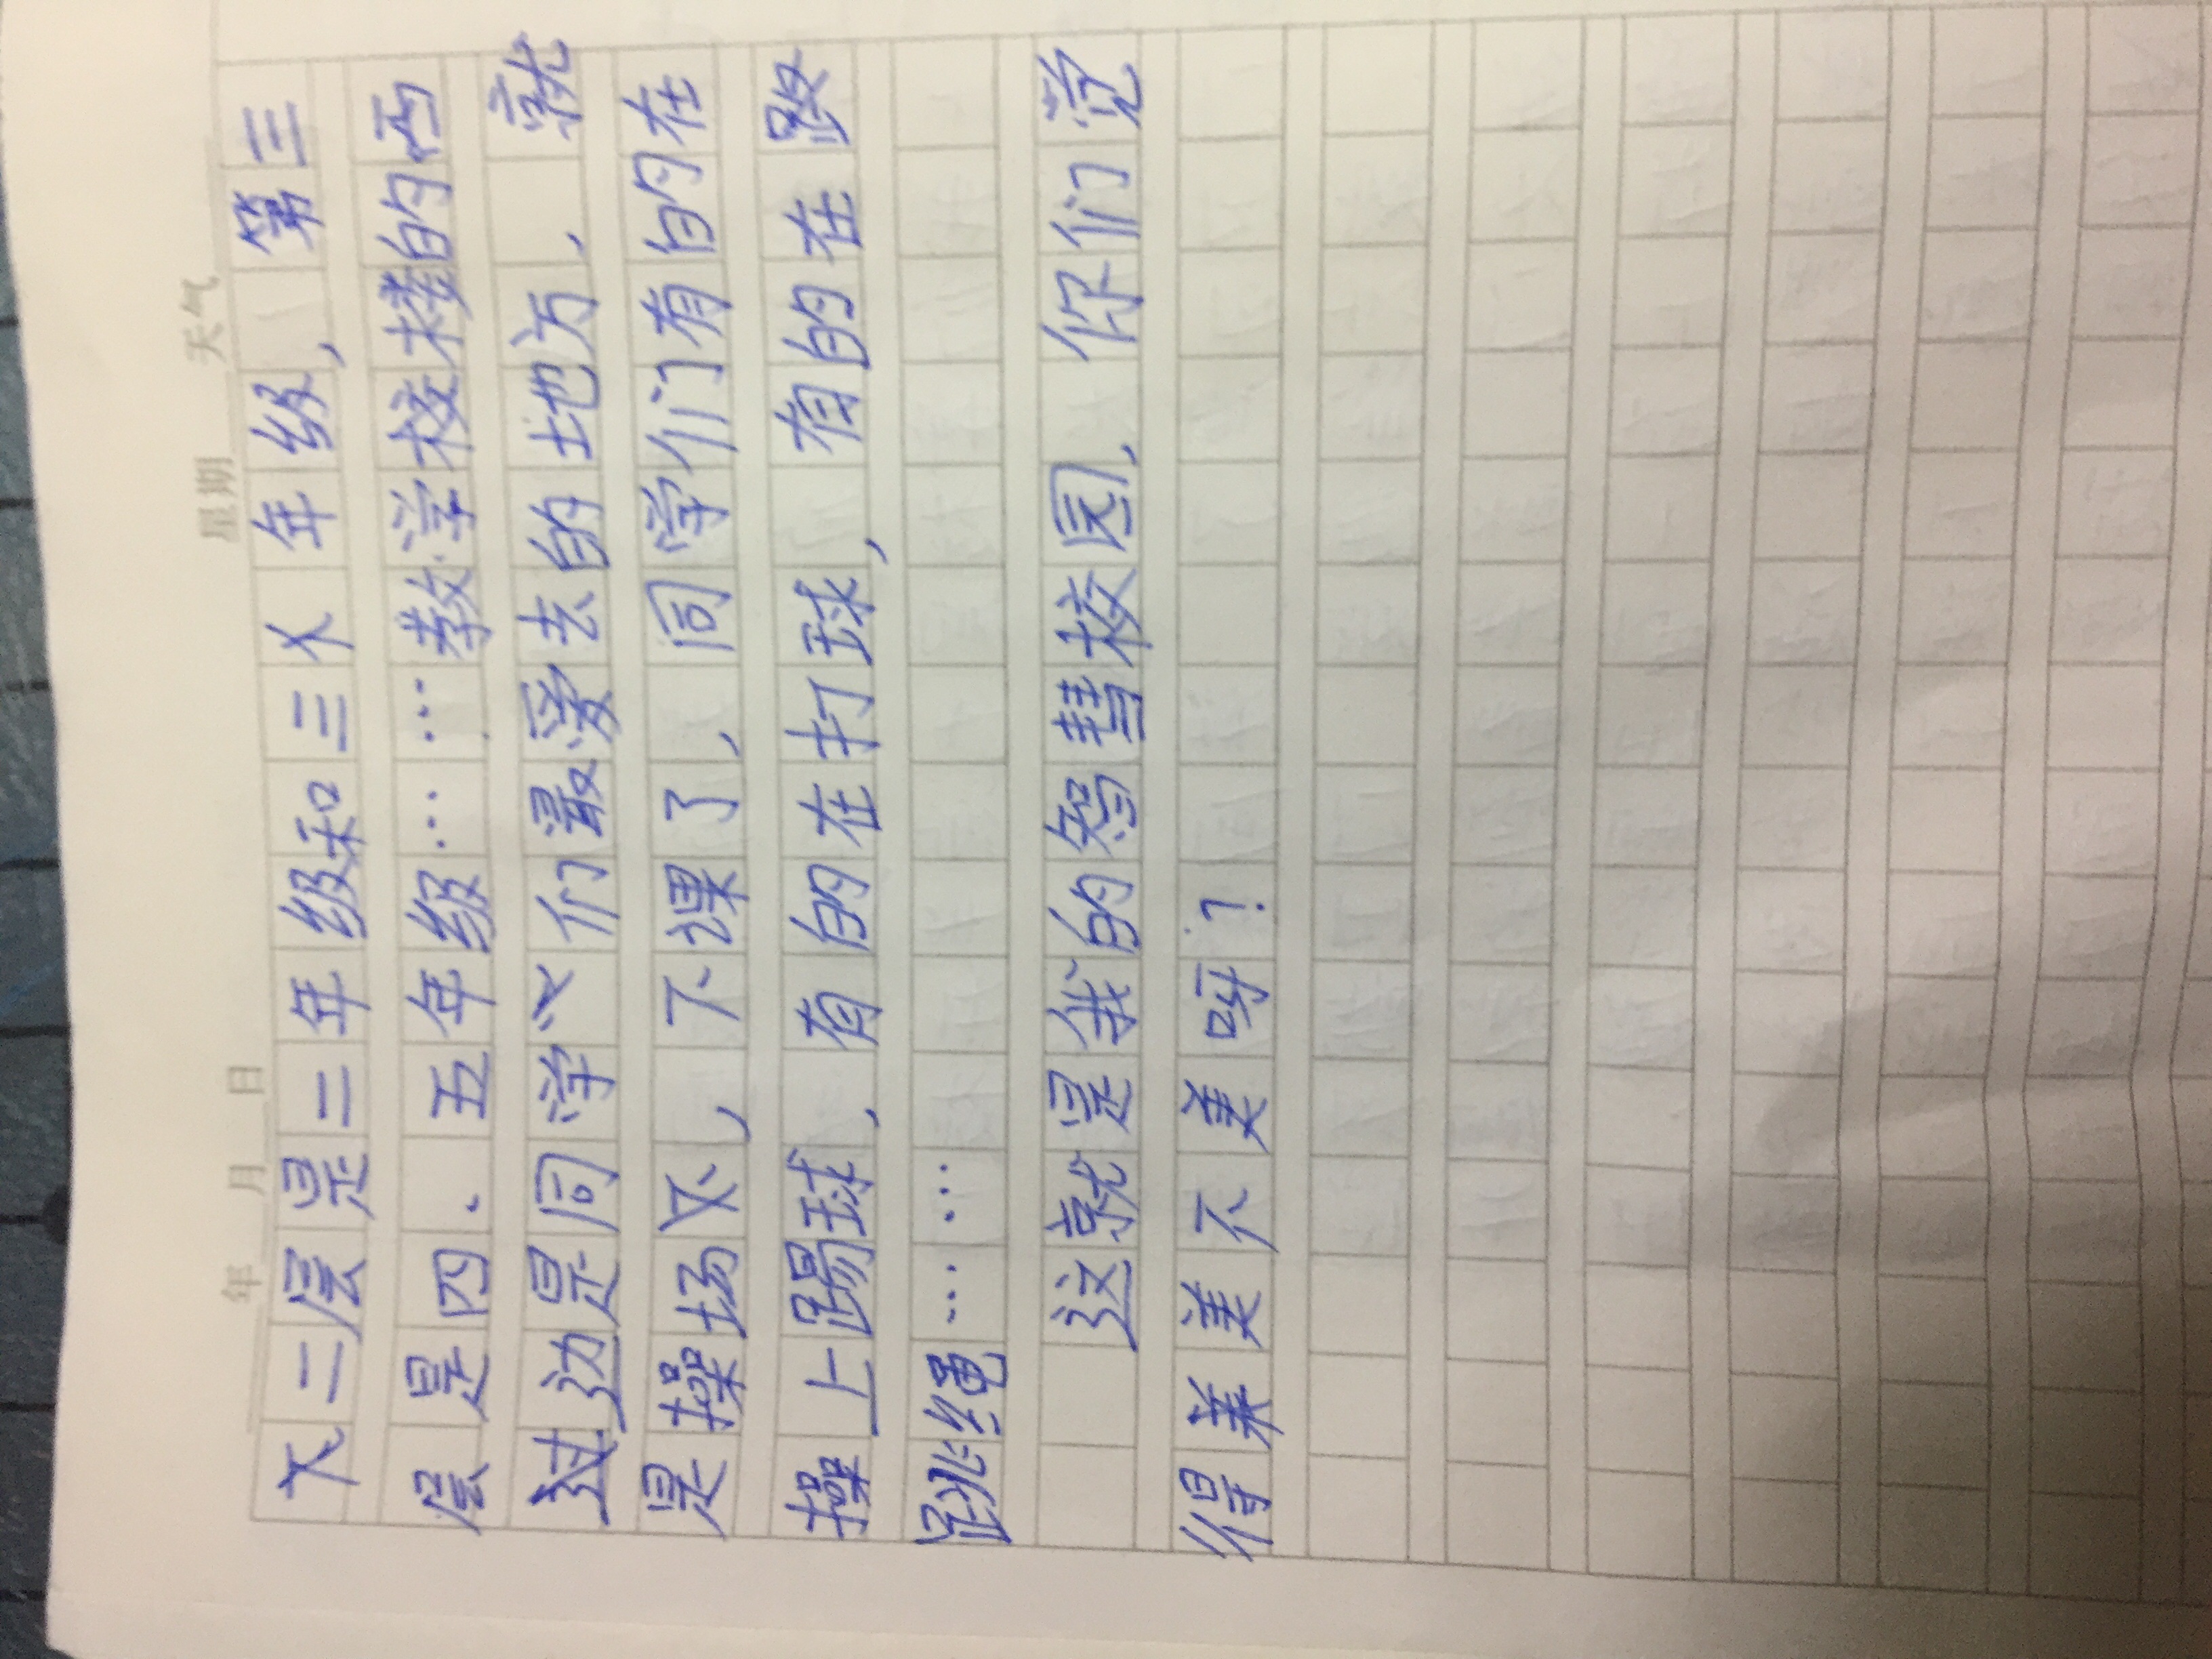 年 月 日 星期 天气
二层是二年级和三年级，第三
层是四、五年级……教学校楼的两
过边是同学们最爱去的地方，就
是操场，下课了，同学们有的在
操上踢球，有的在打球，有的在
跳绳……
这就是我的智慧校园，你们觉
得美不美呀？